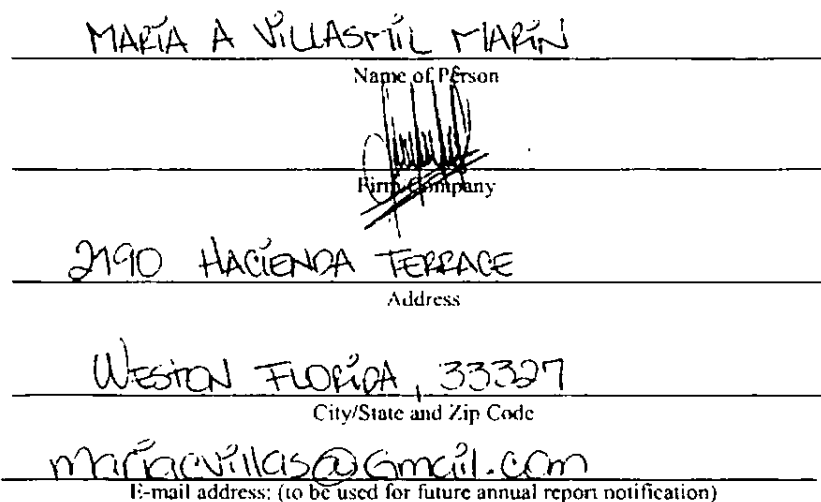 MARÍA A VILLASMIL MARÍN
Name of Person
Firm/Company
2790 HACIENDA TERRACE
Address
WESTON FLORIDA, 33327
City/State and Zip Code
mariacvillas@Gmail.com
E-mail address: (to be used for future annual report notification)